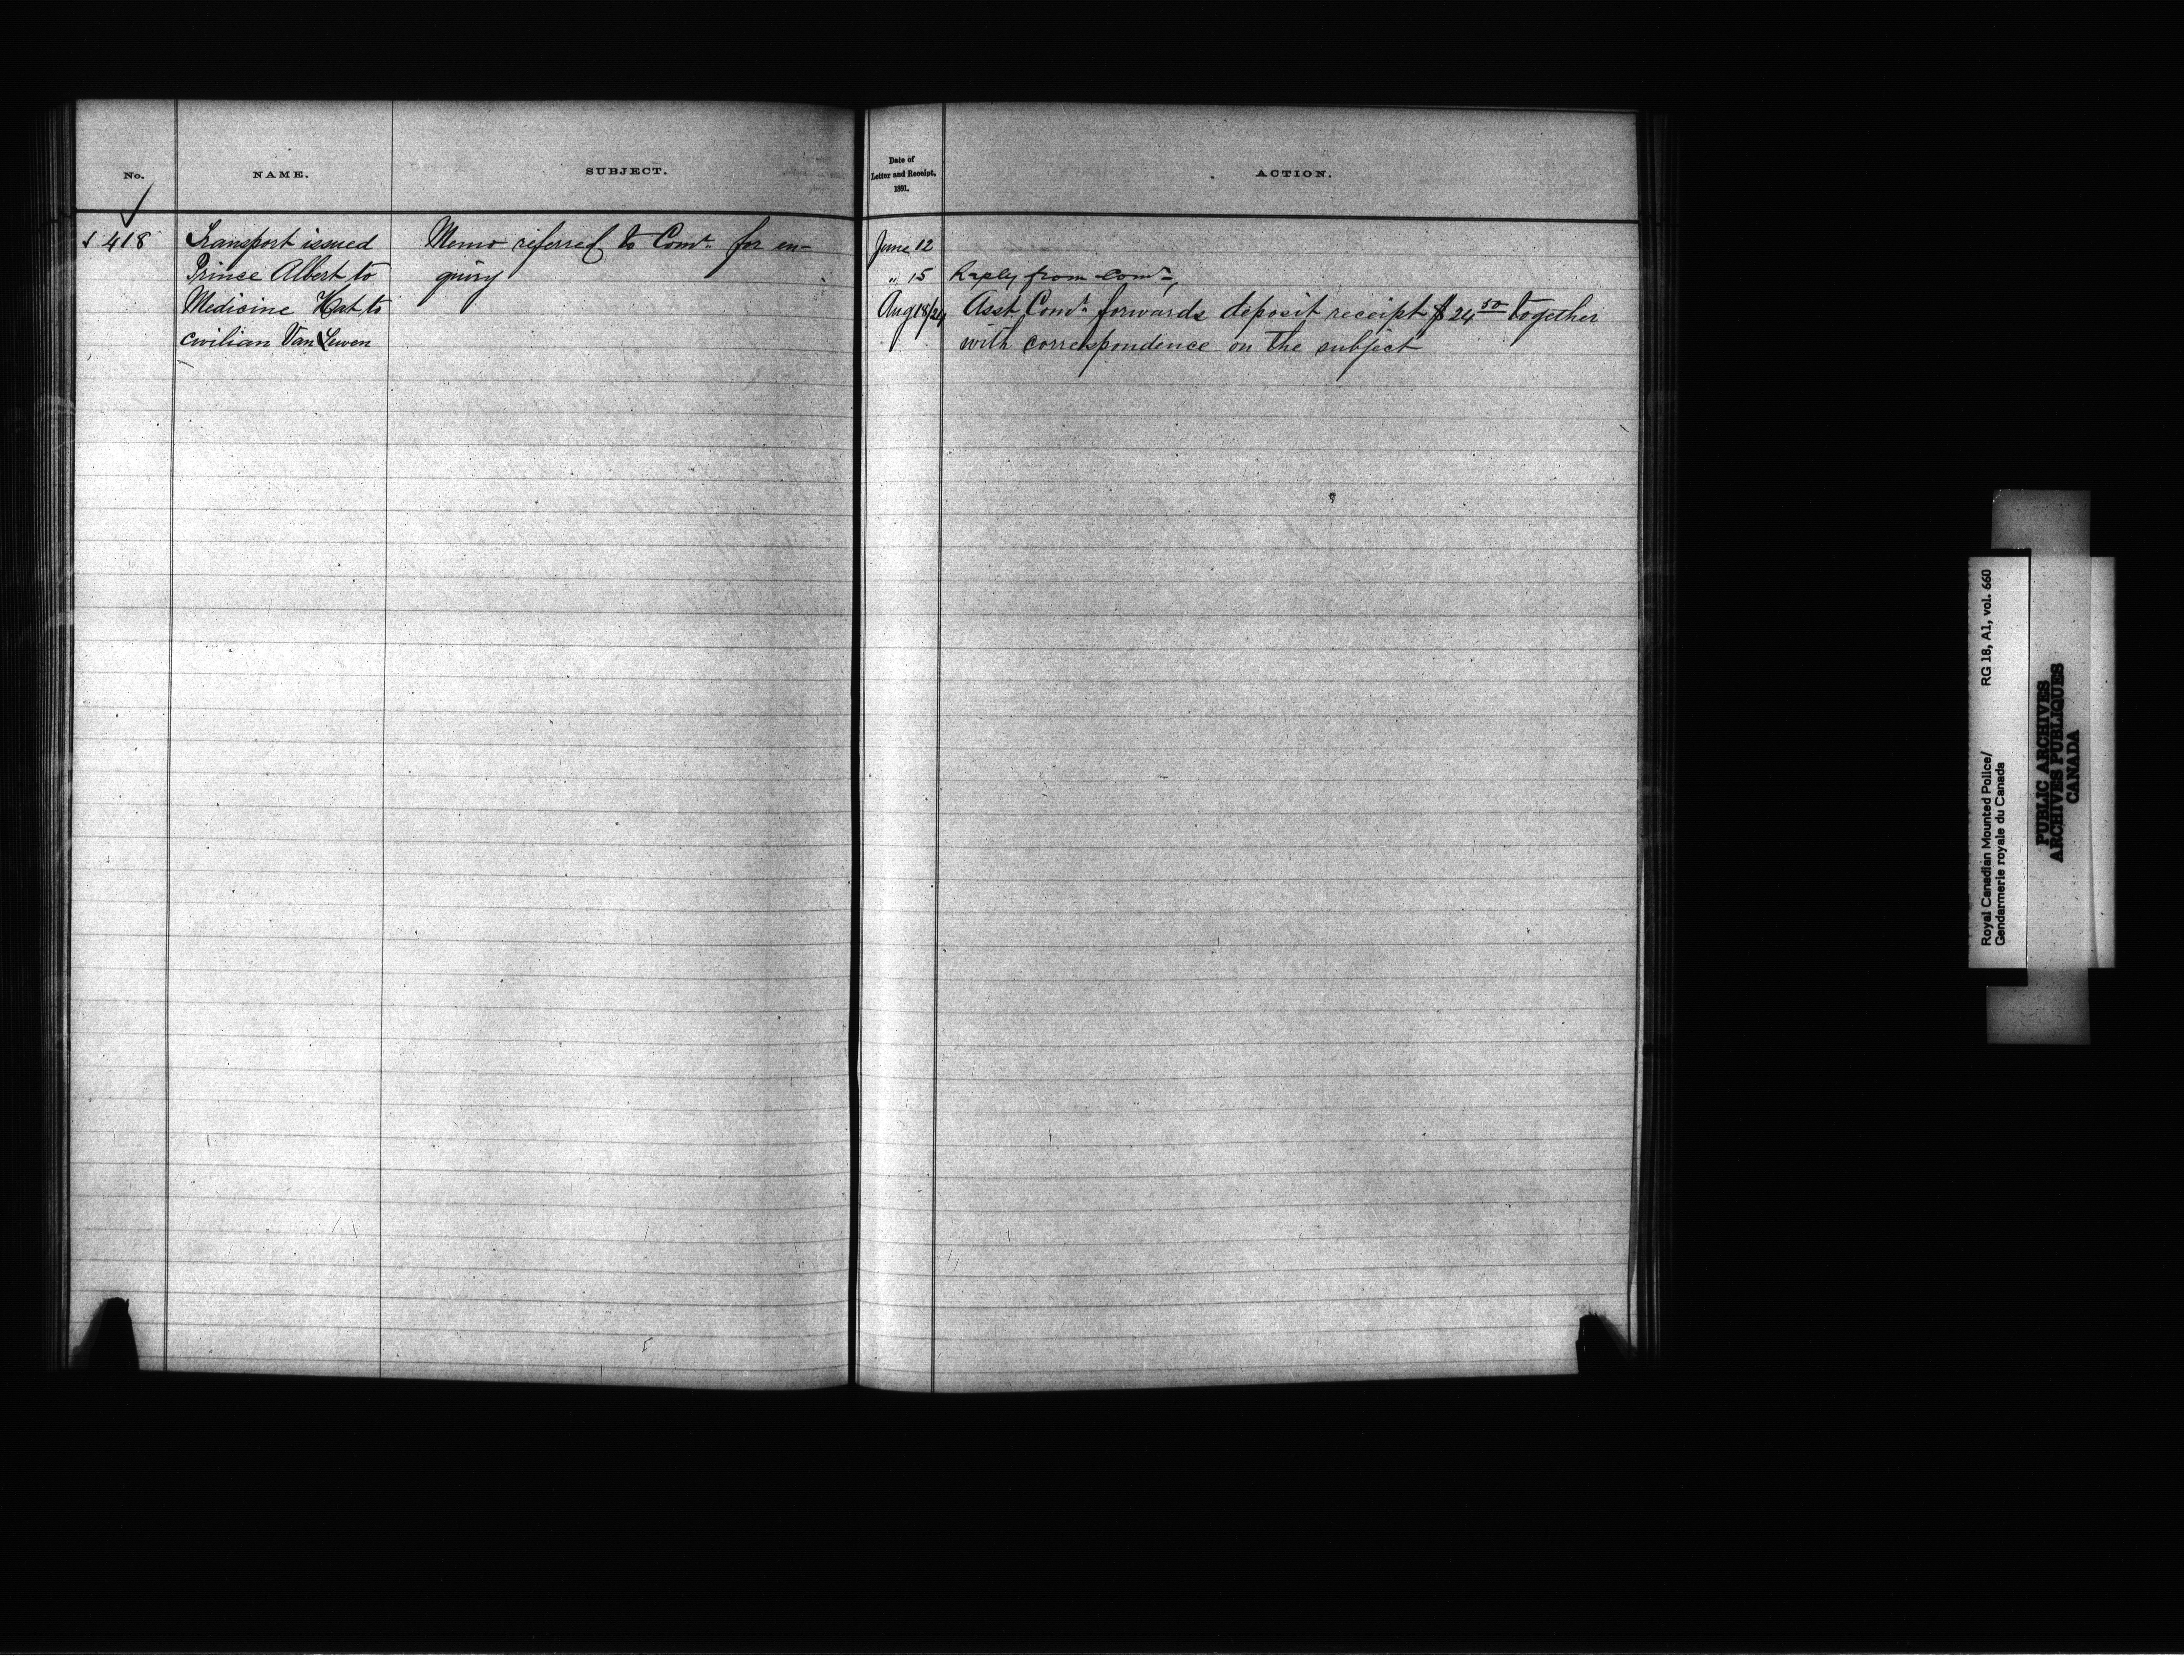 No.
NAME.
SUBJECT.
Date of
Letter and Receipt,
1891.
ACTION.
418
Transport issued
Prince Albert to
Medicine Hat to
civilian Van Lewen
Memo referred to Comr. for en-
quiry
June 12
" 15 Reply from Comr.,
Aug 18/24 Asst Comr. forwards deposit receipt $24 50 together
with correspondence on the subject
Royal Canadian Mounted Police/ RG 18, A1, vol. 660
Gendarmerie royale du Canada
PUBLIC ARCHIVES
ARCHIVES PUBLIQUES
CANADA